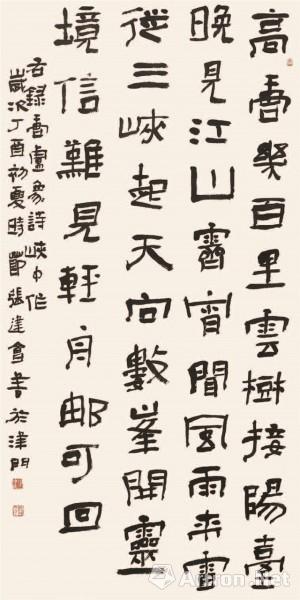 高唐幾百里雲樹接陽臺
晚見江山霽宵聞風雨来雲
從三峽起天向數峯開靈
境信難見輕舟那可回
右録唐盧象詩峽中作
歲次丁酉初夏時節張建會書於津門
Artron.Net